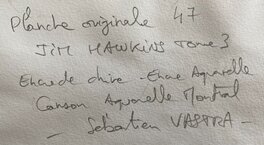 Planche originale 47
JIM HAWKINS Tome 3
Encre de chine - Encre Aquarelle
Canson Aquarelle Montval
- Sébastien VASTRA -